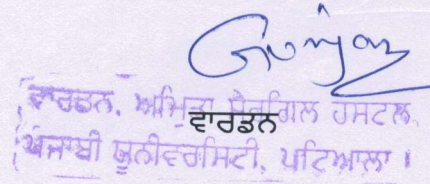 ਵਾਰਡਨ, ਅਮ੍ਰਿਤਾ ਸ਼ੇਰਗਿਲ ਹੋਸਟਲ,
ਵਾਰਡਨ
ਪੰਜਾਬੀ ਯੂਨੀਵਰਸਿਟੀ, ਪਟਿਆਲਾ।